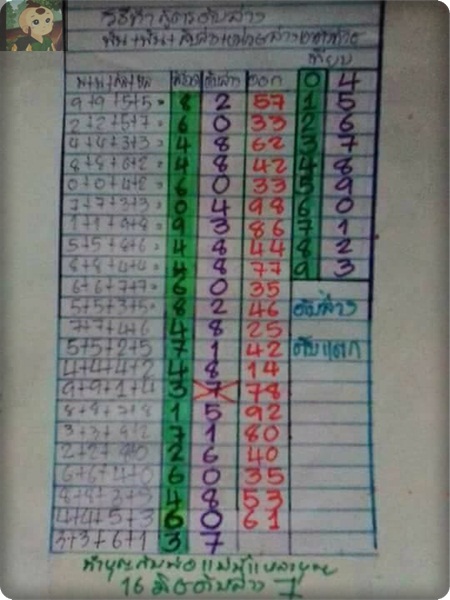 วิธีทำ สูตรดับล่าง
เทียบ
ดับล่าง ออก 0 4
9+9+5+5= 8 2 57 1 5
2+2+5+7= 6 0 33 2 6
4+4+3+3= 4 8 62 3 7
8+8+6+2= 4 8 42 4 8
0+0+4+2= 6 0 33 5 9
7+7+3+3= 0 4 98 6 0
1+1+9+8= 9 3 86 7 1
4 8 44 8 2
8+8+4+4= 4 8 77 9 3
6+6+7+7= 6 0 35
5+5+3+5= 8 2 46 ดับล่าง
7+7+4+6 4 8 25
5+5+2+5 7 1 42 ดับแตก
4+4+4+2 4 8 14
9+9+1+4 3 7 78
1 5 92
3+3+9+2 7 1 80
2 6 40
6+6+4+0 6 0 35
8+8+3+5 4 8 53
4+4+5+3 6 0 61
3+3+6+1 3 7
16 มิย ดับล่าง 7